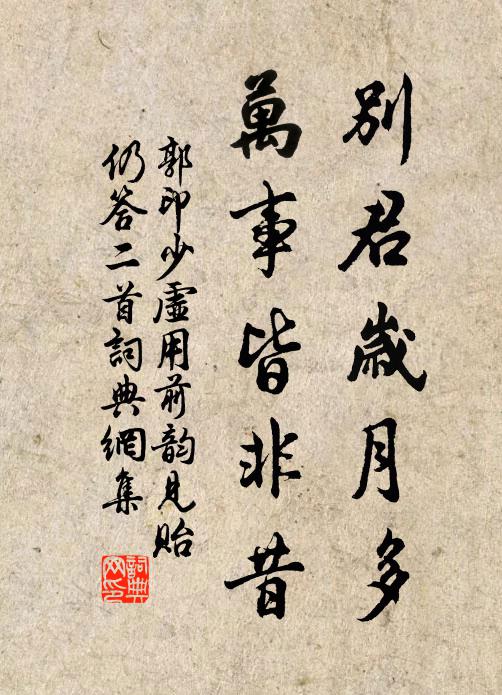 別君歲月多
萬事皆非昔
郭印少虛用前韵見貽
仍答二首詞典網集
詞典
网印